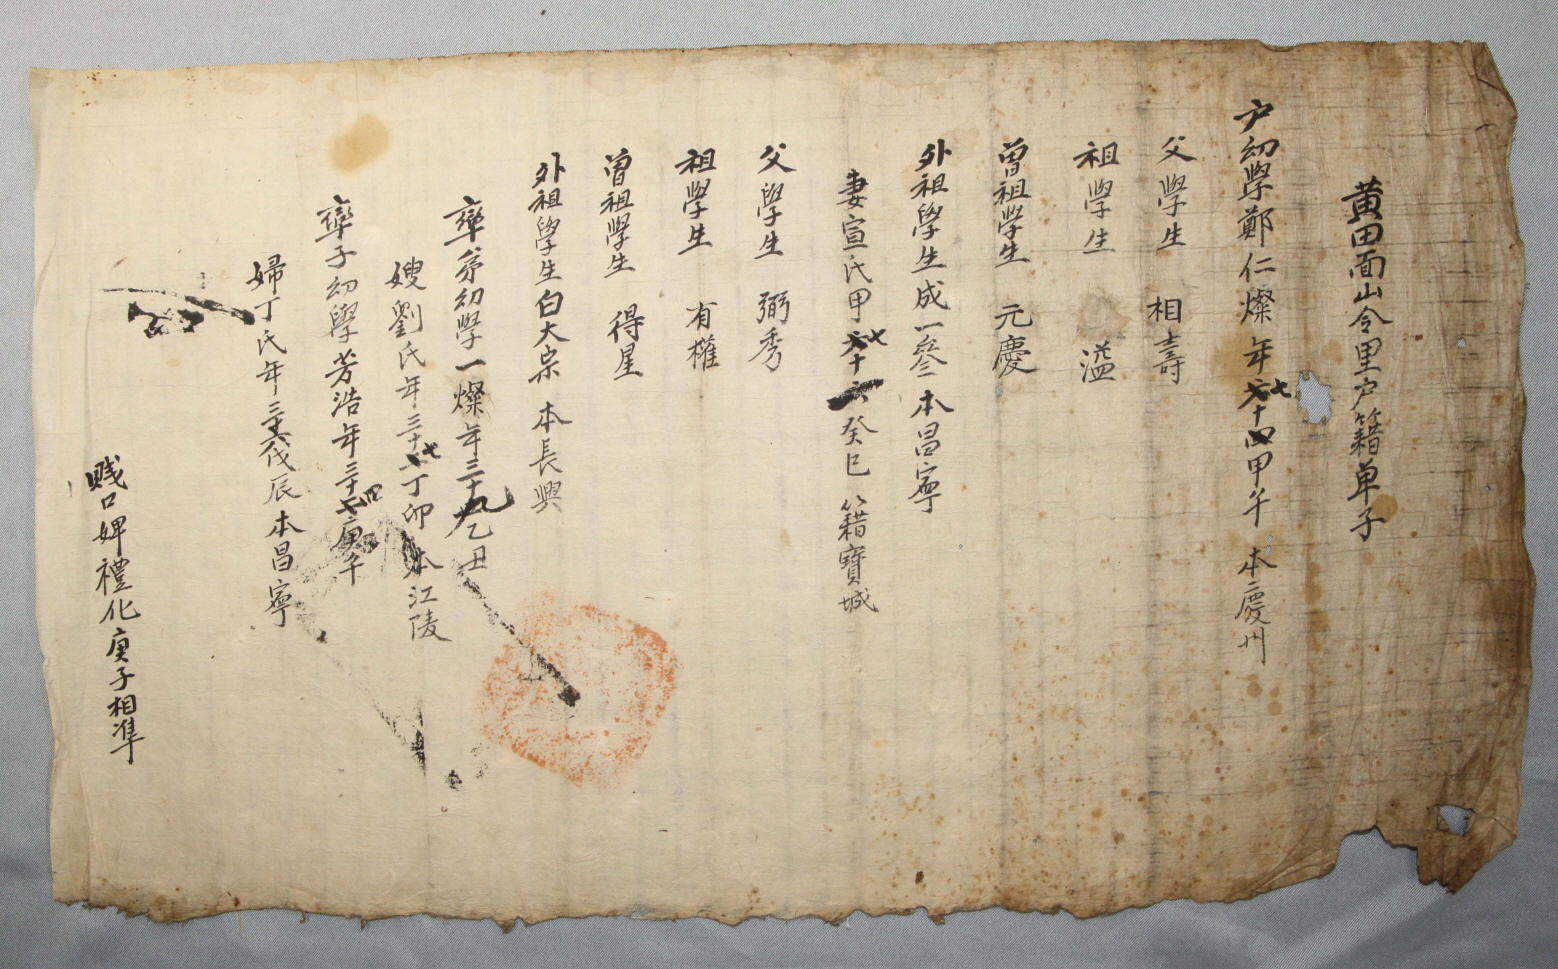 黄田面山令里户籍单子
户幼學鄭仁燦年七十四甲午 本慶州
父學生 相壽
祖學生 溢
曾祖學生 元慶
外祖學生成一參本昌寧
妻宣氏甲七十 癸巳 籍寶城
父學生 弼秀
祖學生 有權
曾祖學生 得星
外祖學生白大宗 本長興
率弟幼學一燦年三十九乙丑
嫂劉氏年三十七丁卯本江陵
率子幼學芳浩年三十四庚午
婦丁氏年三十六戊辰本昌寧
賤口婢禮化庚子相準